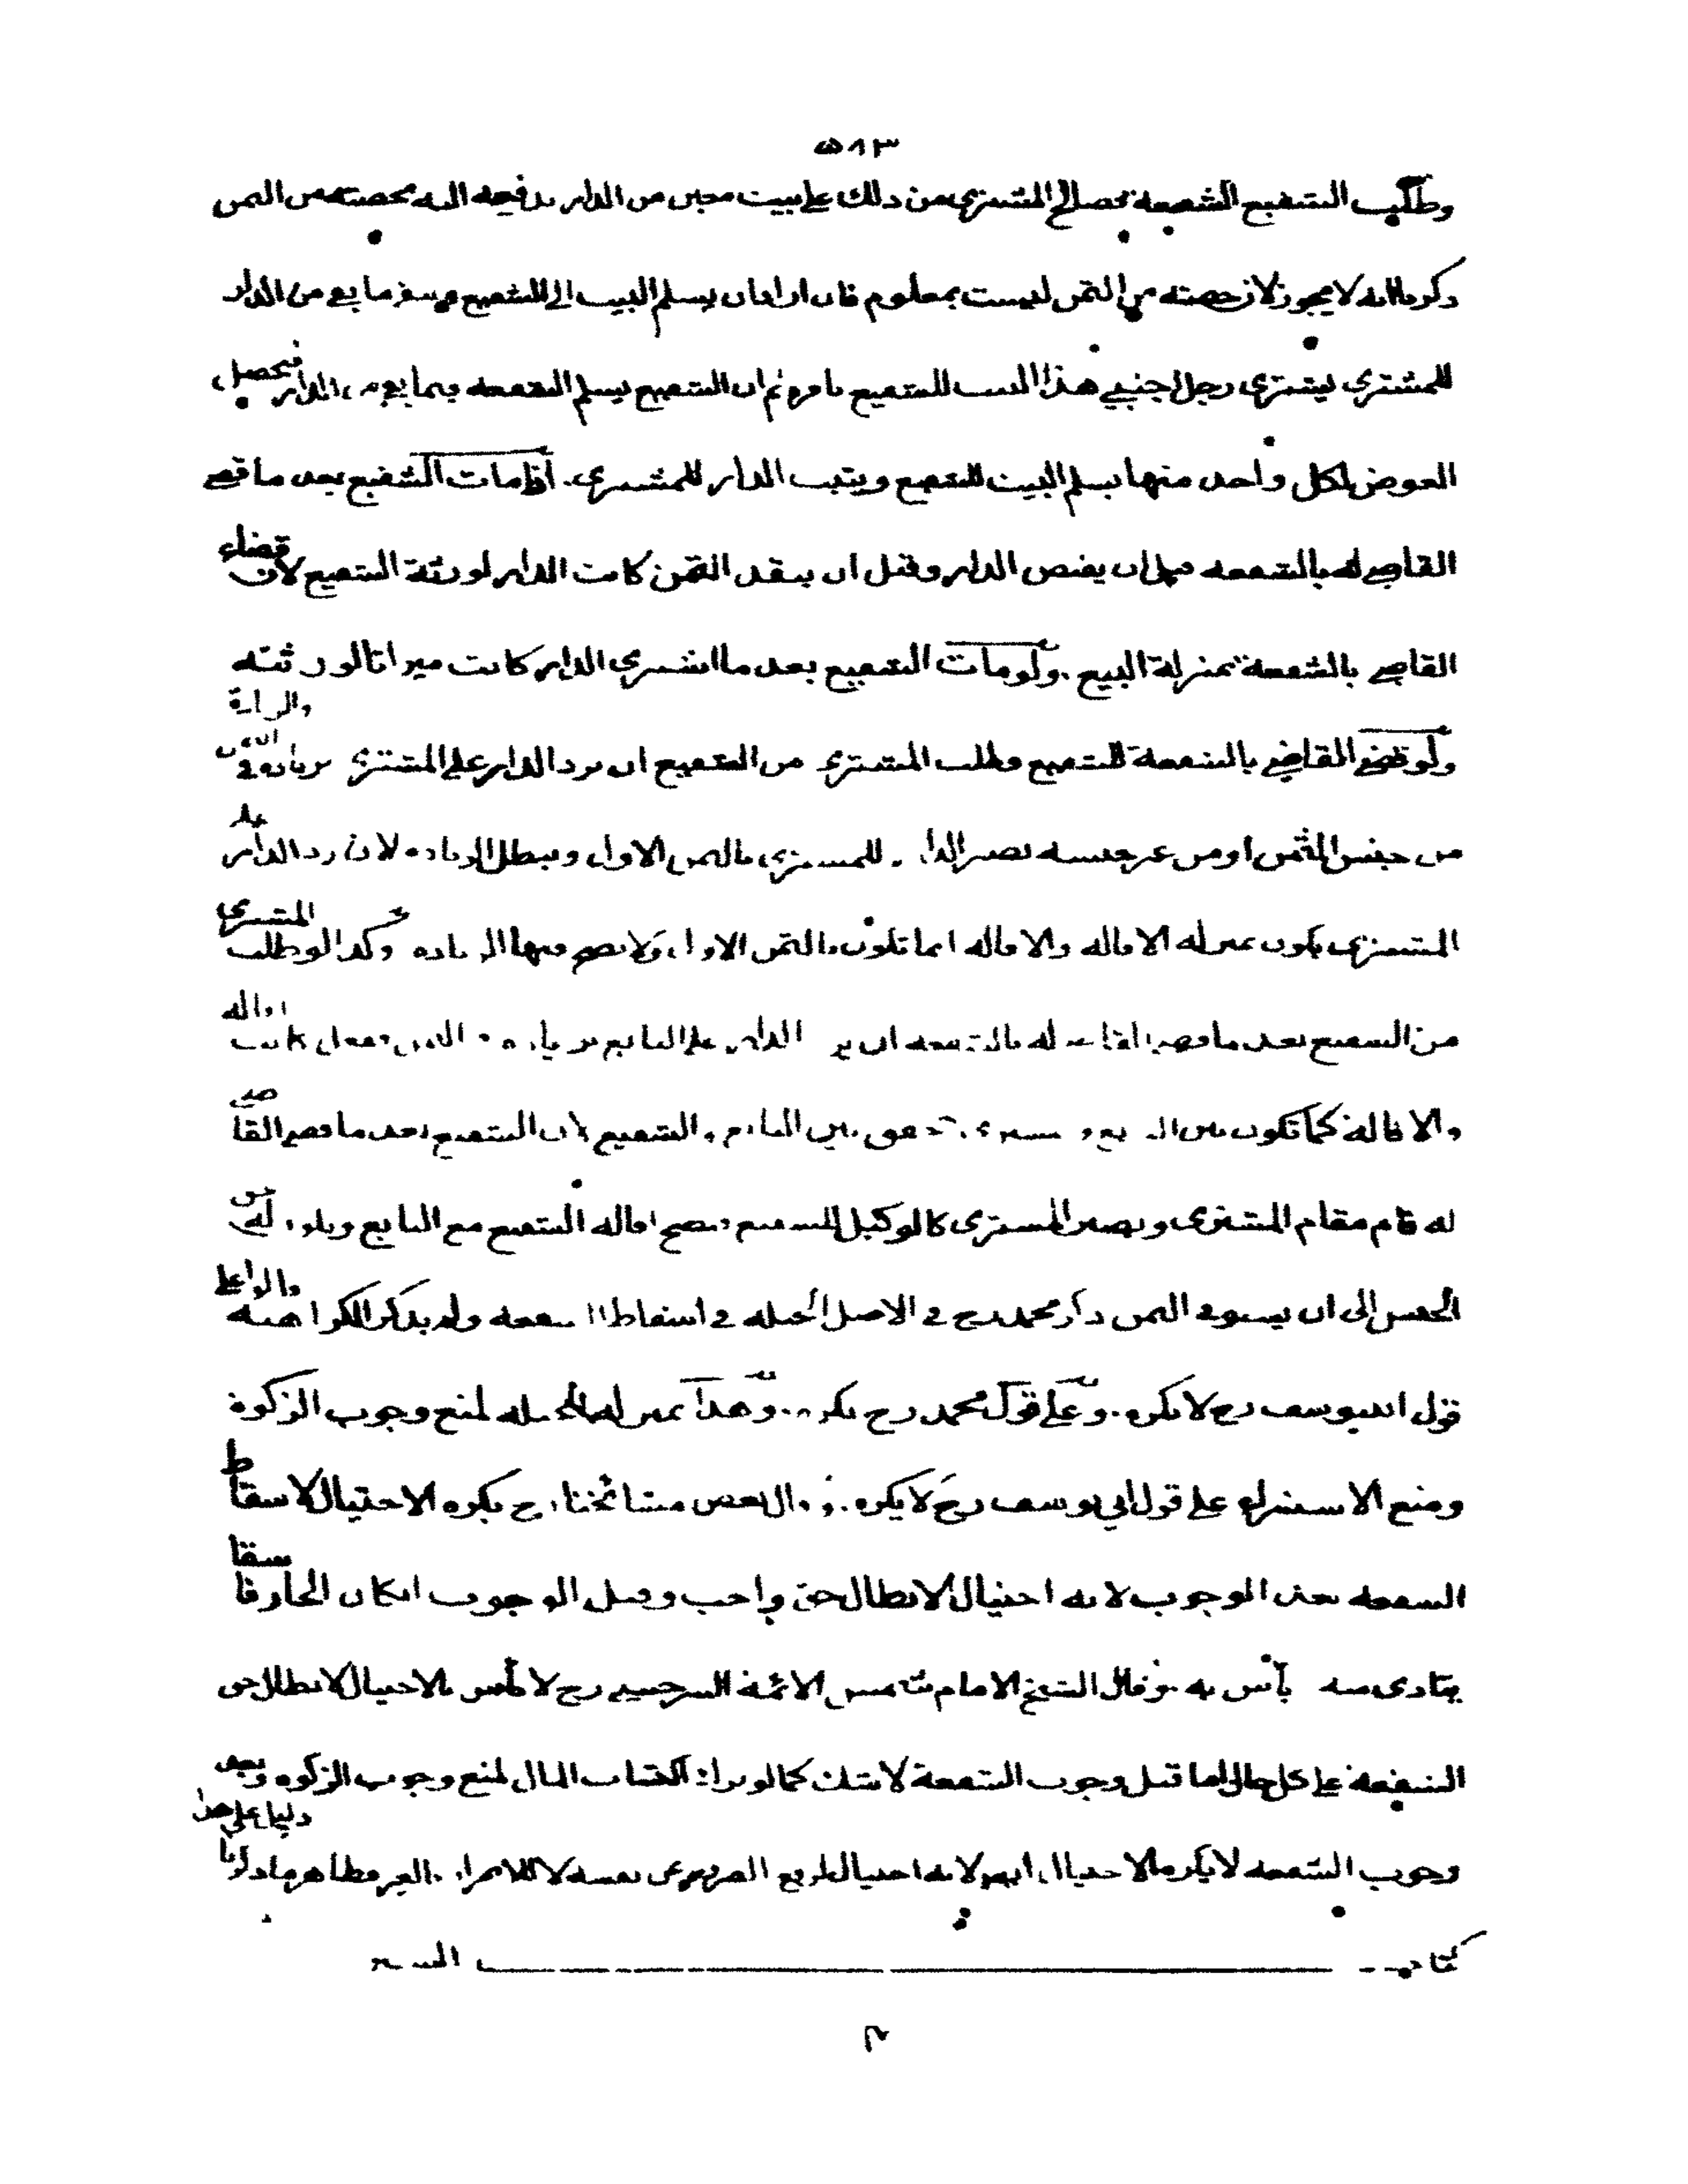 ٥٨٣
وطلب الشفيع الشفعة فصالح المشتري من ذلك على بيت معين من الدار يدفعه اليه بحصته من الثمن
ذكرنا انه لا يجوز لان حصته من الثمن ليست بمعلوم فان ارادان يسلم البيت الى الشفيع ويبقى ما بقي من الدار
للمشتري يشتري رجل اجنبي هذا البيت للشفيع بامره ثم ان الشفيع يسلم الشفعة فيما بقي من الدار فيحصل
العوض لكل واحد منهما يسلم البيت للشفيع ويثبت الدار للمشتري. اذا مات الشفيع بعد ما قضى
القاضي له بالشفعة قبل ان يقبض الدار وقبل ان ينقد الثمن كانت الدار لورثة الشفيع لان قضاء
القاضي بالشفعة بمنزلة البيع. ولو مات الشفيع بعد ما اشترى الدار كانت ميراثا لورثته
ولو قضى القاضي بالشفعة للشفيع وطلب المشتري من الشفيع ان يرد الدار على المشتري بزيادة في الثمن والزيادة
من جنس الثمن او من غير جنسه تصير الدار للمشتري بالثمن الاول ويبطل الزيادة لان رد الدار على
المشتري يكون بمنزلة الاقالة والاقالة انما تكون بالثمن الاول ولا يصح فيها الزيادة وكذا لو طلب المشتري
من الشفيع بعد ما قضى القاضي له بالشفعة ان يرد الدار على البايع بزيادة في الثمن وفعل كانت اقالة
والاقالة كما تكون بين البايع والمشتري تتحقق بين البايع والشفيع لان الشفيع بعد ما قضى القاضي
له قام مقام المشتري ويصير المشتري كالوكيل للشفيع فيصح اقالة الشفيع مع البايع ويكون له حق
الحبس الى ان يستوفي الثمن ذكر محمد رح في الاصل الحيلة في اسقاط الشفعة ولم يذكر الكراهية قالوا على
قول ابي يوسف رح لا يكره. وعلى قول محمد رح يكره. وهذا بمنزلة الحيلة لمنع وجوب الزكوة
ومنع الاستبراء على قول ابي يوسف رح لا يكره. وقال بعض مشائخنا رح يكره الاحتيال لاسقاط
الشفعة بعد الوجوب لانه احتيال لابطال حق واجب وقبل الوجوب ان كان الجار فاسقا
يتأذى منه بأس به. وقال الشيخ الامام شمس الائمة السرخسي رح لا بأس بالاحتيال لابطال حق
الشفعة على كل حال اما قبل وجوب الشفعة لا شك كما لو ترك اكتساب المال لمنع وجوب الزكوة وبعد
وجوب الشفعة لا يكره الاحتيال ايضا لانه احتيال لدفع الضرر عن نفسه لا للاضرار بالغير فظاهر ما ذكرنا دليل على هذا
كتاب